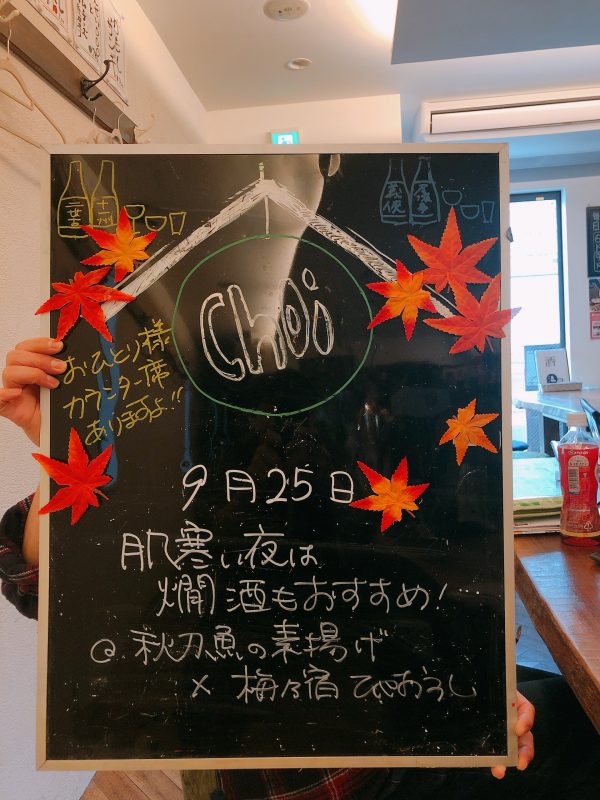 Choi
おひとり様
カウンター席
ありますよ!!
9月25日
肌寒い夜は
燗酒もおすすめ!
@秋刀魚の素揚げ
× 梅乃宿
酒